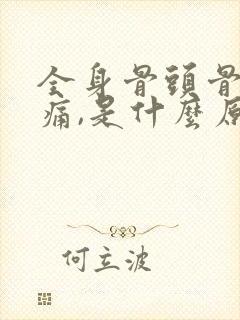 全身骨頭骨
痛,是什麼原
何立波